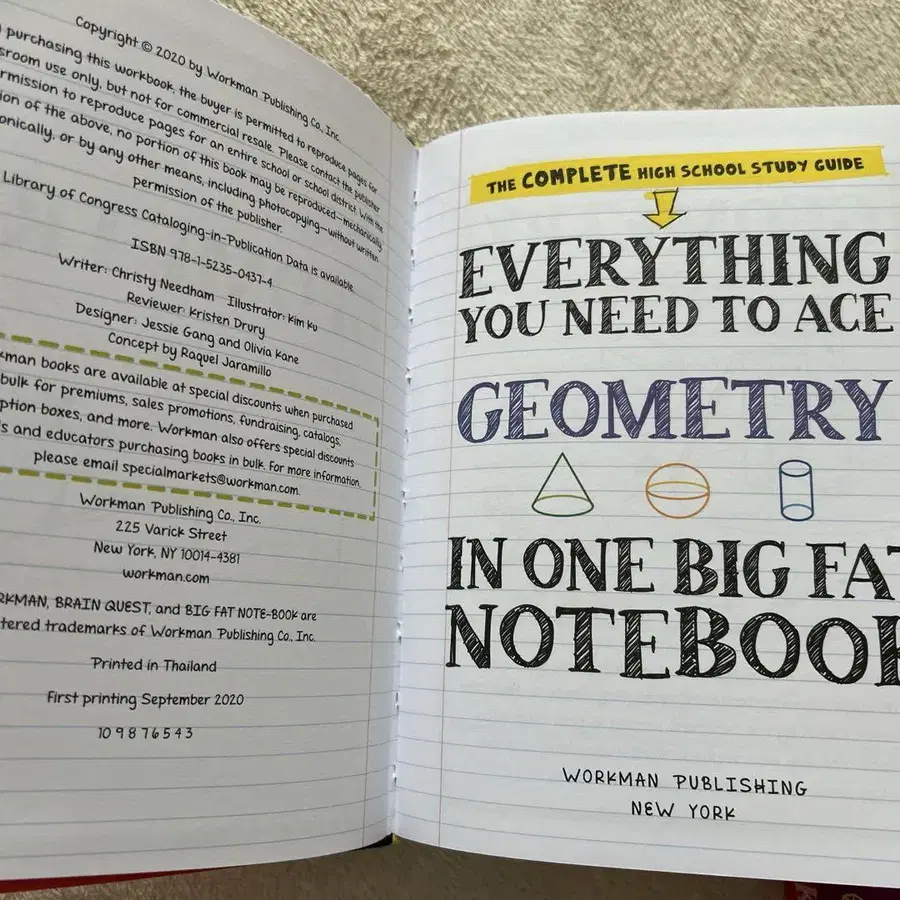 Copyright © 2020 by Workman Publishing Co., Inc.
purchasing this workbook, the buyer is permitted to reproduce pages for
sroom use only, but not for commercial resale. Please contact the publisher
rmission to reproduce pages for an entire school or school district. With the
ion of the above, no portion of this book may be reproduced—mechanically,
onically, or by any other means, including photocopying—without written
permission of the publisher.
Library of Congress Cataloging-in-Publication Data is available.
ISBN 978-1-5235-0437-4
Writer: Christy Needham Illustrator: Kim Ku
Reviewer: Kristen Drury
Designer: Jessie Gang and Olivia Kane
Concept by Raquel Jaramillo
kman books are available at special discounts when purchased
bulk for premiums, sales promotions, fundraising, catalogs,
ption boxes, and more. Workman also offers special discounts
s and educators purchasing books in bulk. For more information,
please email specialmarkets@workman.com.
Workman Publishing Co., Inc.
225 Varick Street
New York, NY 10014-4381
workman.com
RKMAN, BRAIN QUEST, and BIG FAT NOTE-BOOK are
tered trademarks of Workman Publishing Co., Inc.
Printed in Thailand
First printing September 2020
10 9 8 7 6 5 4 3
THE COMPLETE HIGH SCHOOL STUDY GUIDE
EVERYTHING
YOU NEED TO ACE
GEOMETRY
IN ONE BIG FAT
NOTEBOOK
WORKMAN PUBLISHING
NEW YORK